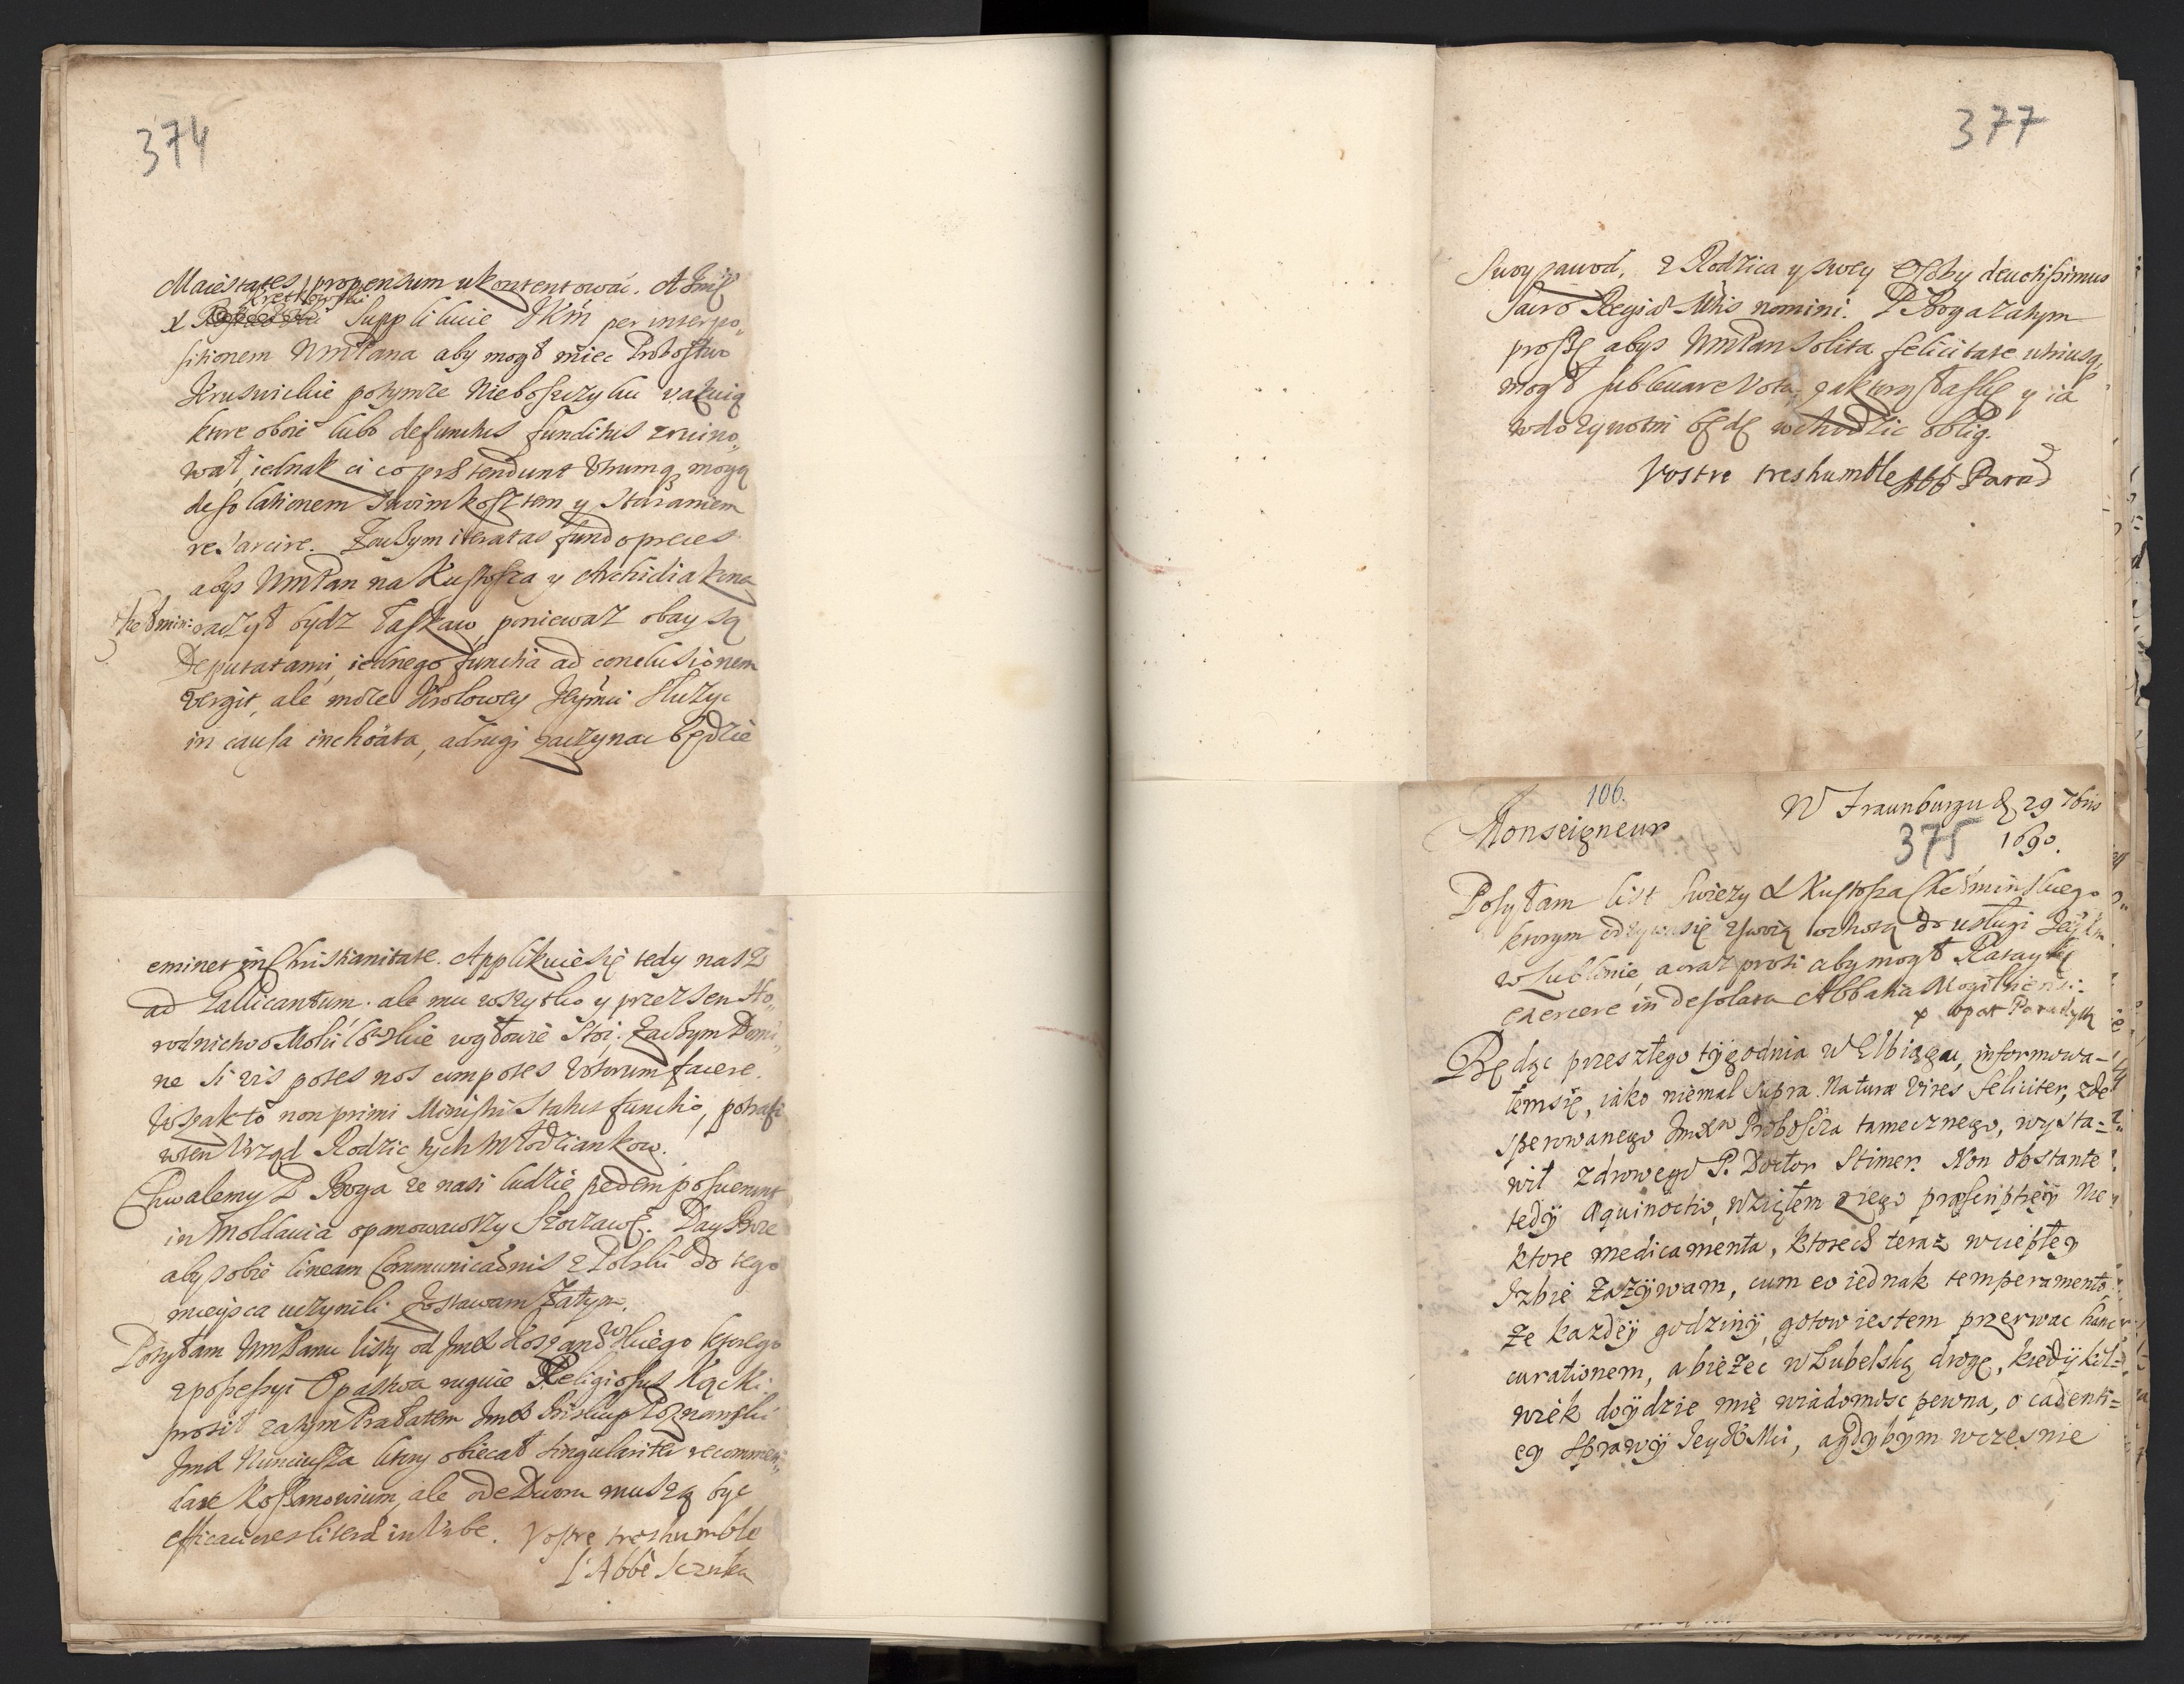 374
Maiestates propensum ukontentować. A Jmć
Krettkowski
X Supplikuie JKM per interpo„
sitionem WmPana aby mogł miec Probostwo
Kruswickie potymze Nieboszczyku vakuią
ktore oboie lubo defunctus funditus zruino„
wał, iednak ci co prætendunt utrumq, mogą
desolationem swoim kosztem y staraniem
resarcire. Zaczym iteratas fundo preces
abys WmPan na Kustosza y Archidiakona
Chełmin: raczył bydz łaskaw, poniewaz obay są
Deputatami, iednego functia ad conclusionem
vergit, ale moze Krolowey Jeymci słuzyc
in causa inchoata, adrugi zaczynac będzie
eminet in Christianitate. Applikuiesię tedy nasz
ad Gallicantum. ale mu wszytko y przezsen Ho„
rodnictwo Mohilewskie wgłowie stoi. Zaczym Domi„
ne si vis potes nos compotes votorum facere.
Wszak to non primi Ministri Status functio, potrafi
wten Urząd Rodzic tych Młodziankow.
Chwalemy P Boga ze nasi ludzie pedem posuerunt
in Moldavia opanowawszy Soczawę. Day Boze
aby sobie lineam Communicaõnis z Polski do tego
mieysca uczynili. Zostawam Zatym.
Posyłam WmPanu listy od JmX Koszanowskiego ktorego
zpossessyi Opactwa ruguie Religiosus Kącki:
prosił zatym Prałatem JmX Biskup Poznanski
JmX Nunciusza ktory obiecał singulariter recommen„
dare Koszanowium, ale ode Dworu muszą byc
efficaciores literæ in Urbe. Vostre treshumble
L'Abbè Sczuka
377
Swoy zawod, z Rodzica y swey Osoby devotissimus
Sacro Regiæ Mtis nomini. P Boga zatym
proszę abys WmPan solita felicitate utriusq,
mogł sublevare Vota, zaktorą łaskę y ia
wdozywotni będę wchodzic oblig.
Vostre treshumble Abb Parad
106.
W Fraunburgu d 29 7bris
Monseigneur
375
1690.
Posyłam list swiezy X Kustosza Chełminskiego
ktorym odzywa się zswoią ochotą do usługi JeyKm
w Lublinie, a oraz prosi aby mogł
exercere in desolata Abbatia Mogilnensi:
x opat Paradyzk
Będąc przeszłego tygodnia w Elbiągu, informowa-
łemsię, iako niemal supra Naturæ vires feliciter, zde
sperowanego JmXa Proboscza tamecznego, wysta=
wił zdrowego P. Doctor Stimer. Non obstante
tedÿ Æquinoctio, wziąłem ziego præscriptięÿ nie
ktore medicamenta, ktorech teraz wciepłey
Izbie Zazÿwam, cum eo iednak temperamento,
ze kazdeÿ godzinÿ, gotow iestem przerwac hanc
curationem, abiezec w Lubelską drogę, kiedÿkol=
wiek doÿdzie mię wiadomosc pewna, o cadenti=
ey sprawÿ JeyKMci, agdybym wczesnie